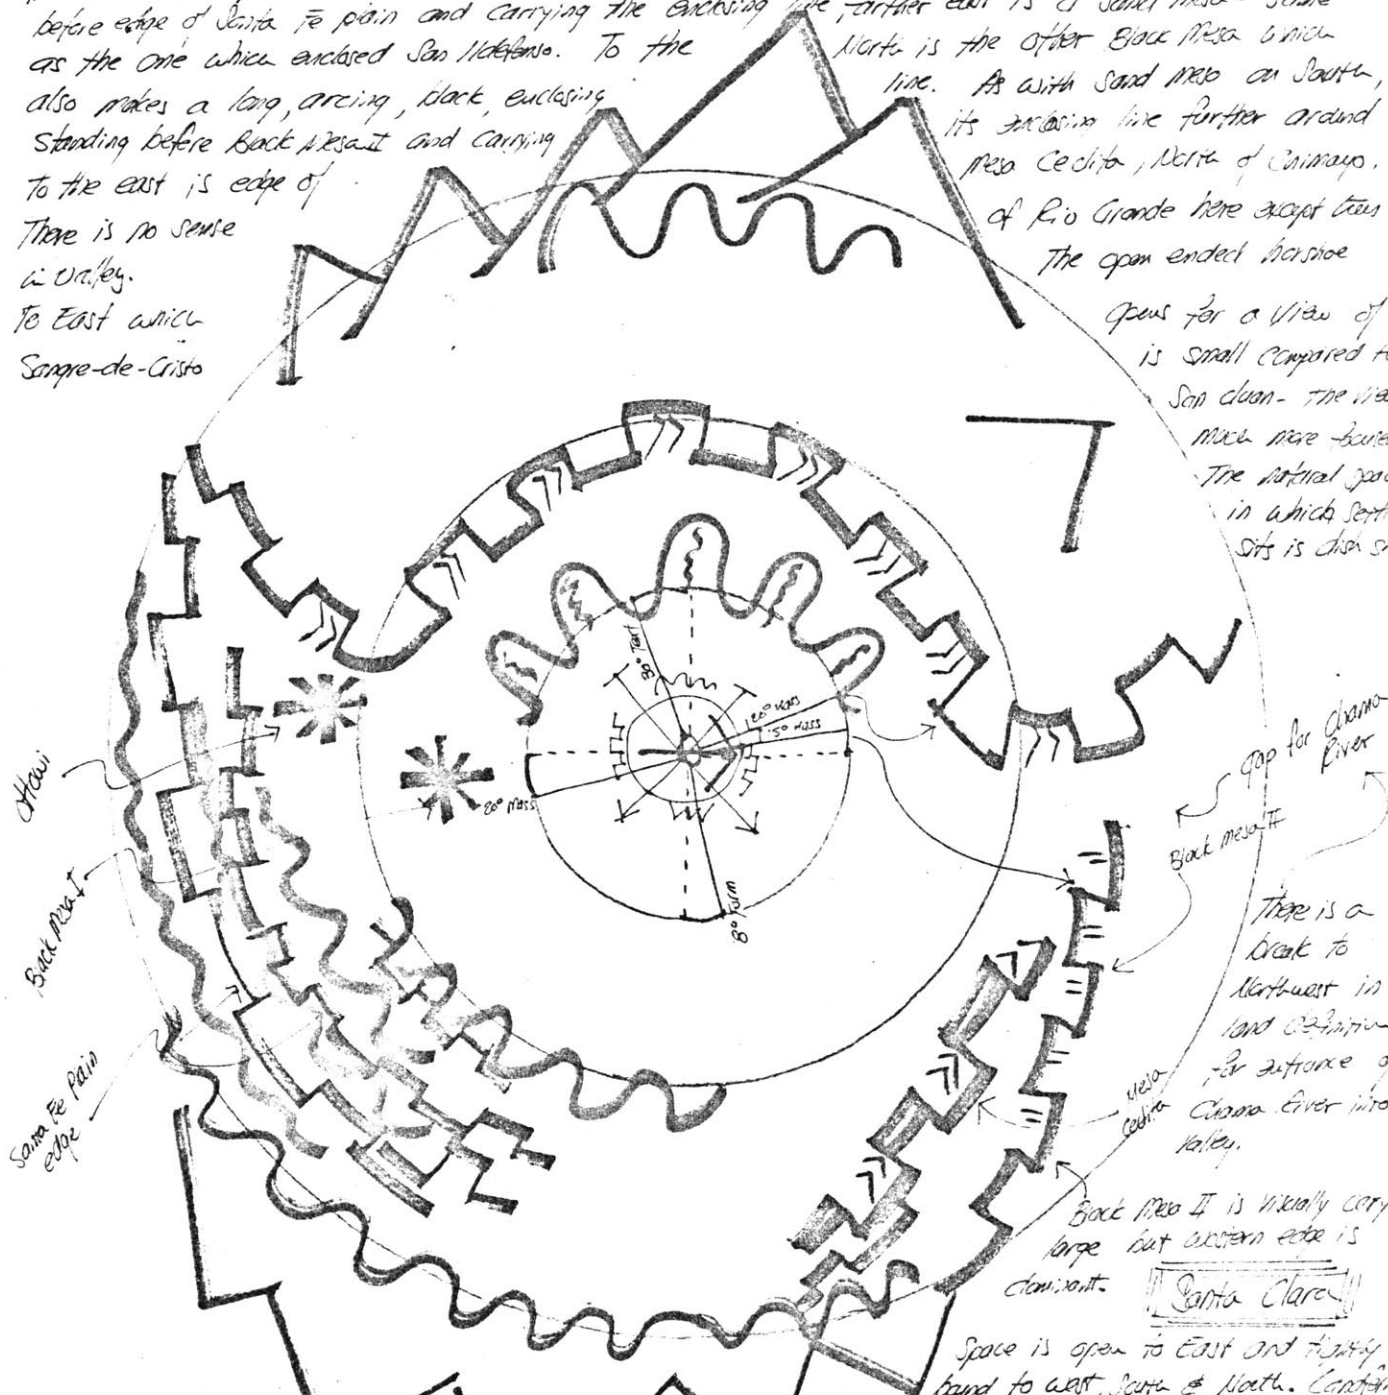 before edge of Santa Fe plain and carrying the enclosing line farther east is a sand mesa - same
as the one which enclosed San Ildefonso. To the North is the other Black Mesa which
also makes a long, arcing, black, enclosing line. As with sand mesa on South,
Standing before Black Mesa II and carrying its enclosing line further around
To the east is edge of Mesa Cedita, North of Chimayo.
There is no sense of Rio Grande here except trees
in valley. The open ended horshoe
To East which opens for a view of
Sangre-de-Cristo is small compared to
San Juan - the view
much more focused
The natural space
in which settl
sits is dish s
30° Text
20° Mass
5° Mass
20° Mass
8° Form
Otowi
Black Mesa I
Santa Fe Plain
edge
gap for Chama
River
Black Mesa II
There is a
break to
Northwest in
land definition
for entrance of
Chama River into
Valley.
Mesa
Cedita
Black Mesa II is visually very
large but western edge is
dominant.
Santa Clara
Space is open to East and tightly
band to west, South & North.